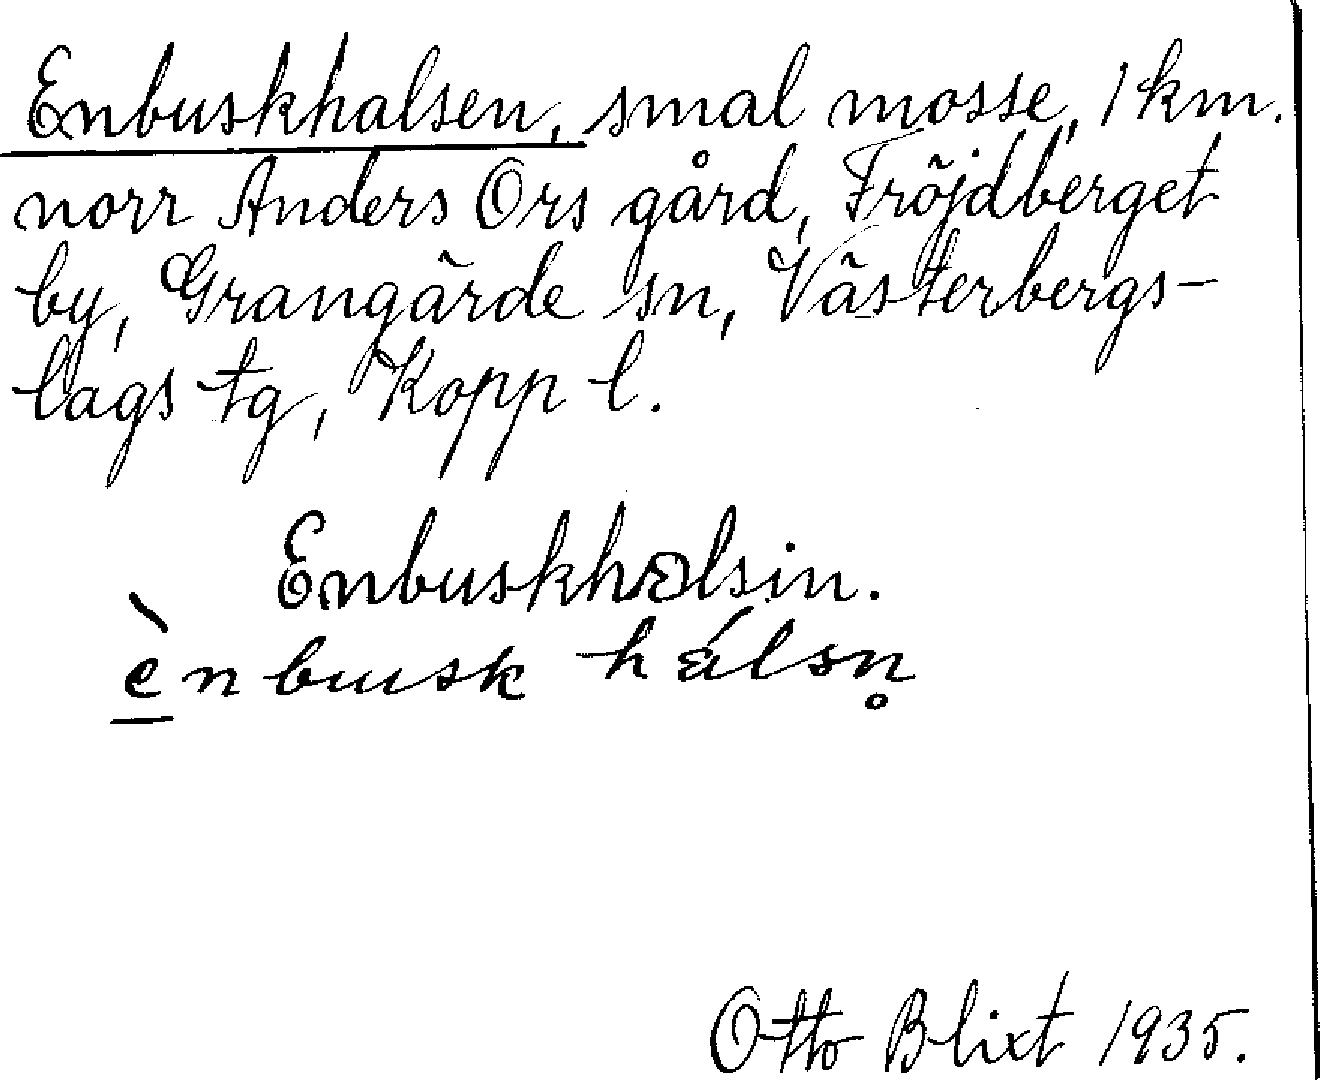 Enbuskhalsen, smal mosse, 1 km.
norr Anders Ors gård, Fröjdberget
by, Grangärde sn, Västerbergs-
lags tg, Kopp l.
Enbuskhalsin.
ènbuskhálsn̥
Otto Blixt 1935.